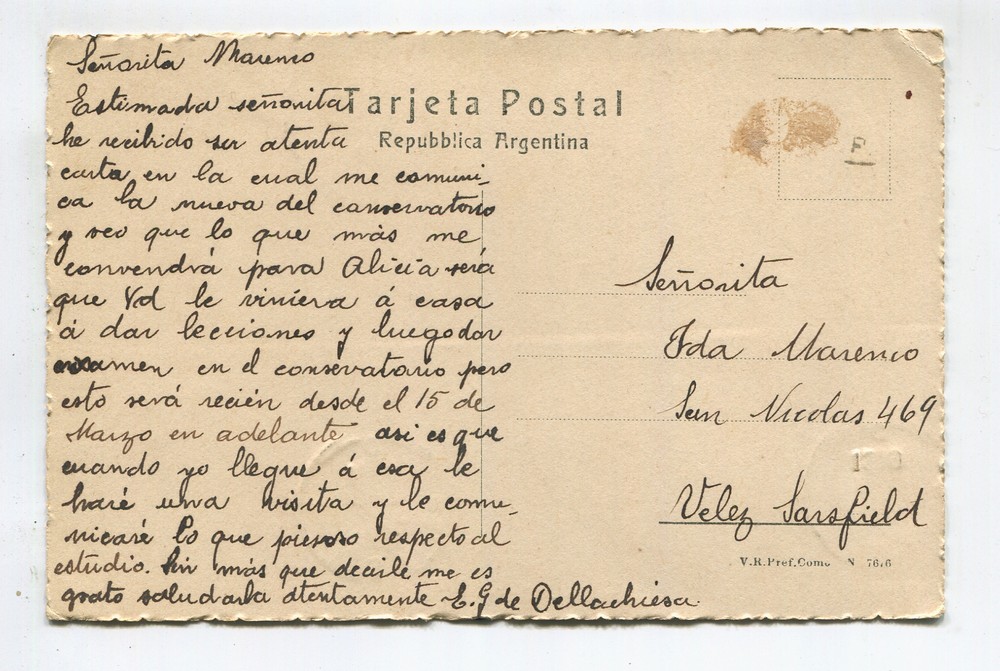 Señorita Marenco
Estimada señorita
he recibido su atenta
carta en la cual me comuni-
ca la nueva del conservatorio
y veo que lo que más me
convendrá para Alicia será
que Vd le viniera á casa
á dar lecciones y luego dar
examen en el conservatorio pero
esto será recién desde el 15 de
Marzo en adelante asi es que
cuando yo llegue á esa le
haré una visita y le comu-
nicaré lo que pienso respecto al
estudio. Sin más que decirle me es
grato saludarla atentamente E. G de Dellachiesa.
Tarjeta Postal
Repubblica Argentina
Señorita
Ida Marenco
San Nicolas 469
Velez Sarsfield
V.R.Pref.Como N 7676